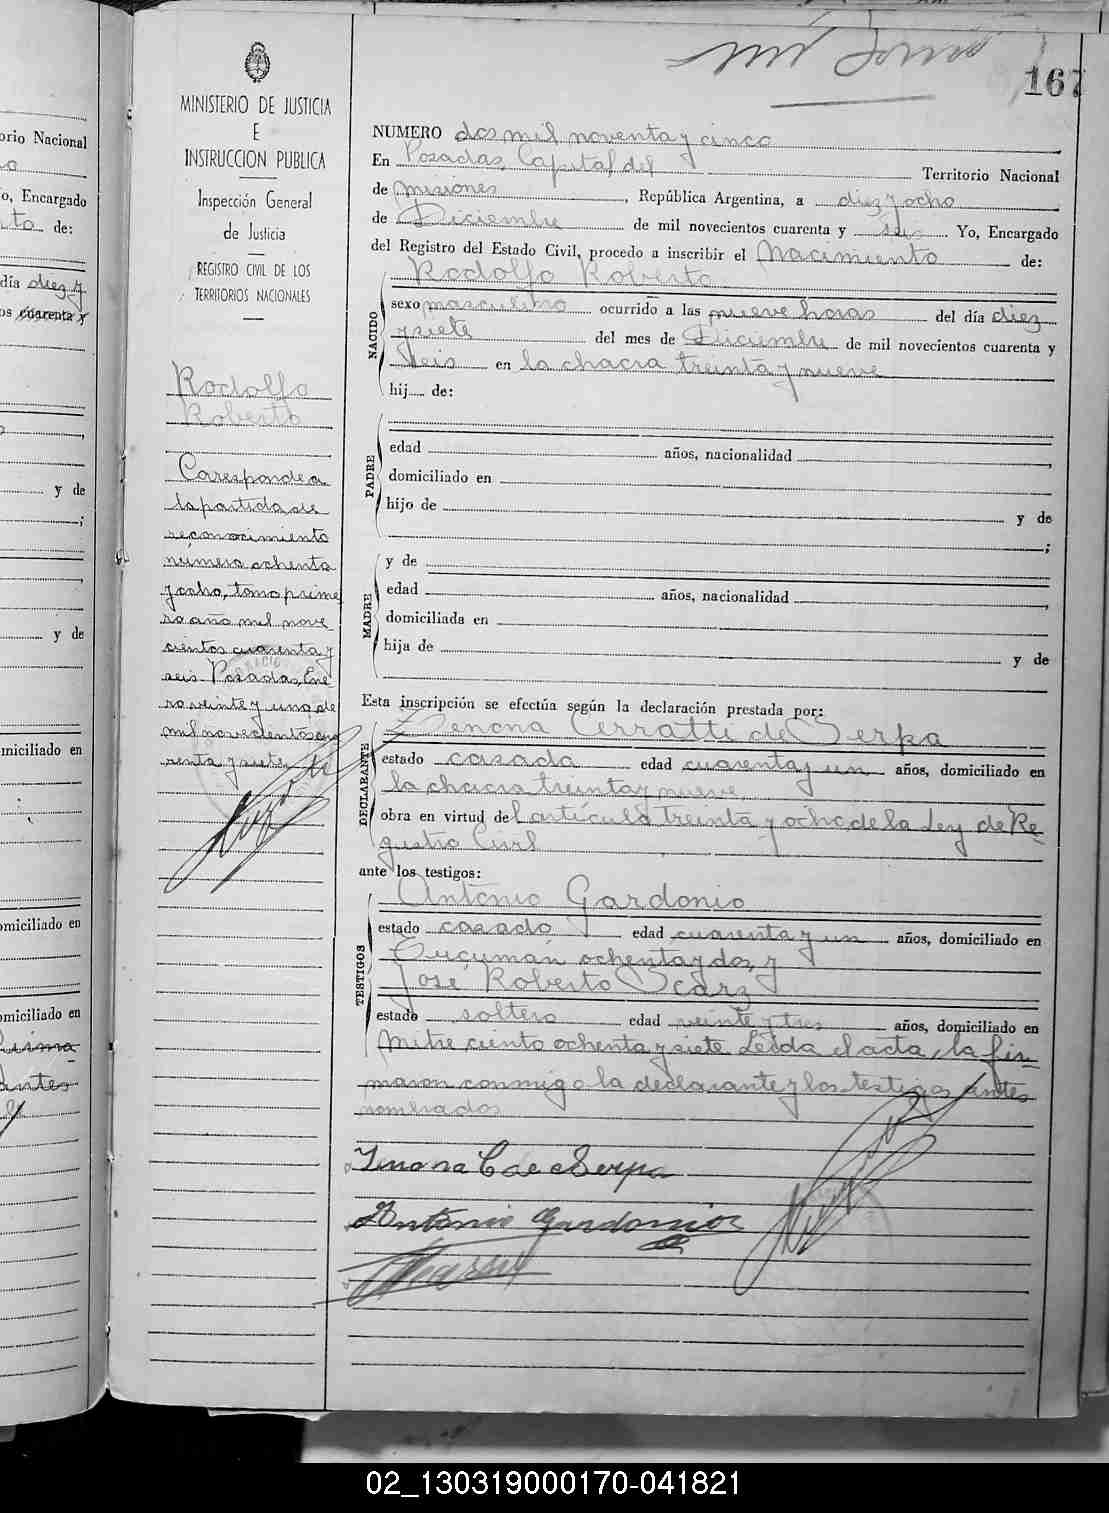 orio Nacional
o, Encargado
de:
día diez y
os cuarenta y
y de
;
y de
miciliado en
omiciliado en
omiciliado en
MINISTERIO DE JUSTICIA
E
INSTRUCCION PUBLICA
Inspección General
de Justicia
REGISTRO CIVIL DE LOS
TERRITORIOS NACIONALES
Rodolfo
Roberto
Corresponde a
la partida de
reconocimiento
número ochenta
y ocho, tomo prime
ro año mil nove
cientos cuarenta y
seis. Posadas, Ene
ro veinte y uno de
mil novecientos cua
renta y siete
167
NUMERO dos mil noventa y cinco
En Posadas, Capital del Territorio Nacional
de Misiones, República Argentina, a diez y ocho
de Diciembre de mil novecientos cuarenta y seis Yo, Encargado
del Registro del Estado Civil, procedo a inscribir el Nacimiento de:
Rodolfo Roberto
NACIDO
sexo masculino ocurrido a las nueve horas del día diez
y siete del mes de Diciembre de mil novecientos cuarenta y
seis en la chacra treinta y nueve
hij de:
PADRE
edad años, nacionalidad ,
domiciliado en
hijo de y de
;
MADRE
y de
edad años, nacionalidad ,
domiciliada en
hija de y de
Esta inscripción se efectúa según la declaración prestada por:
Zenona Cerratti de Serpa
DECLARANTE
estado casada edad cuarenta y un años, domiciliado en
la chacra treinta y nueve,
obra en virtud del artículo treinta y ocho de la Ley de Re-
gistro Civil
ante los testigos:
Antonio Gardonio
TESTIGOS
estado casado edad cuarenta y un años, domiciliado en
Tucumán ochenta y dos, y
José Roberto
estado soltero edad veinte y tres años, domiciliado en
Mitre ciento ochenta y siete Leída el acta, la fir-
maron conmigo la declarante y los testigos antes
nombrados
C de Serpa
Antonio Gardonio
02_130319000170-041821